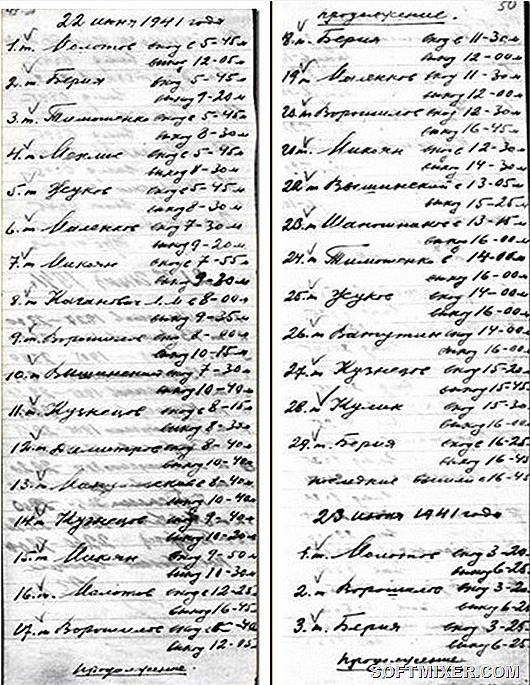 22 июня 1941 года
1. т. Молотов вход в 5-45м
выход 12-05м
2. т. Берия вход 5-45м
выход 9-20м
3. т. Тимошенко вход в 5-45м
выход 8-30м
4. т. Мехлис вход в 5-45м
выход 8-30м
5. т. Жуков вход в 5-45м
выход 8-30м
6. т. Маленков вход 7-30м
выход 9-20м
7. т. Микоян вход в 7-55м
выход 9-30м
8. т. Каганович Л.М в 8-00м
выход 9-35м
9. т. Ворошилов вход 8-00м
выход 10-15м
10. т. Вышинский вход 7-30м
выход 10-40м
11. т. Кузнецов вход в 8-15м
выход 8-30м
12. т. Димитров вход 8-40м
выход 10-40м
13. т. в 8-40м
выход 10-40м
14. т. Кузнецов вход 9-40м
выход 10-20м
15. т. Микоян вход 9-50м
выход 11-30м
16. т. Молотов вход в 12-25м
выход 16-45м
17. т. Ворошилов вход в
выход 12-05м
продолжение.
50
продолжение.
18. т. Берия вход в 11-30м
выход 12-00м
19. т. Маленков вход 11-30м
выход 12-00м
20. т. Ворошилов вход 12-30
выход 16-45м
т. Микоян вход в 12-30
выход 14-30м
22. т. Вышинский в 13-05м
выход 15-25м
23. т. Шапошников в 13-15м
выход 16-00м
24. т. Тимошенко в 14-00м
выход 16-00м
25. т. Жуков вход 14-00м
выход 16-00м
26. т. Ватутин вход 14-00
выход 16-00
27. т. Кузнецов вход 15-20
выход 15-45
28. т. Кулик вход 15-30
выход 16-00
29. т. Берия вход в 16-25
выход 16-45
последние вышли в 16-45
23 июня 1941 года
1. т. Молотов вход 3-20
выход 6-25
2. т. Ворошилов вход 3-2
выход 6-2
3. т. Берия вход 3-25
выход 6-25
продолжение
SOFTMIXER.COM